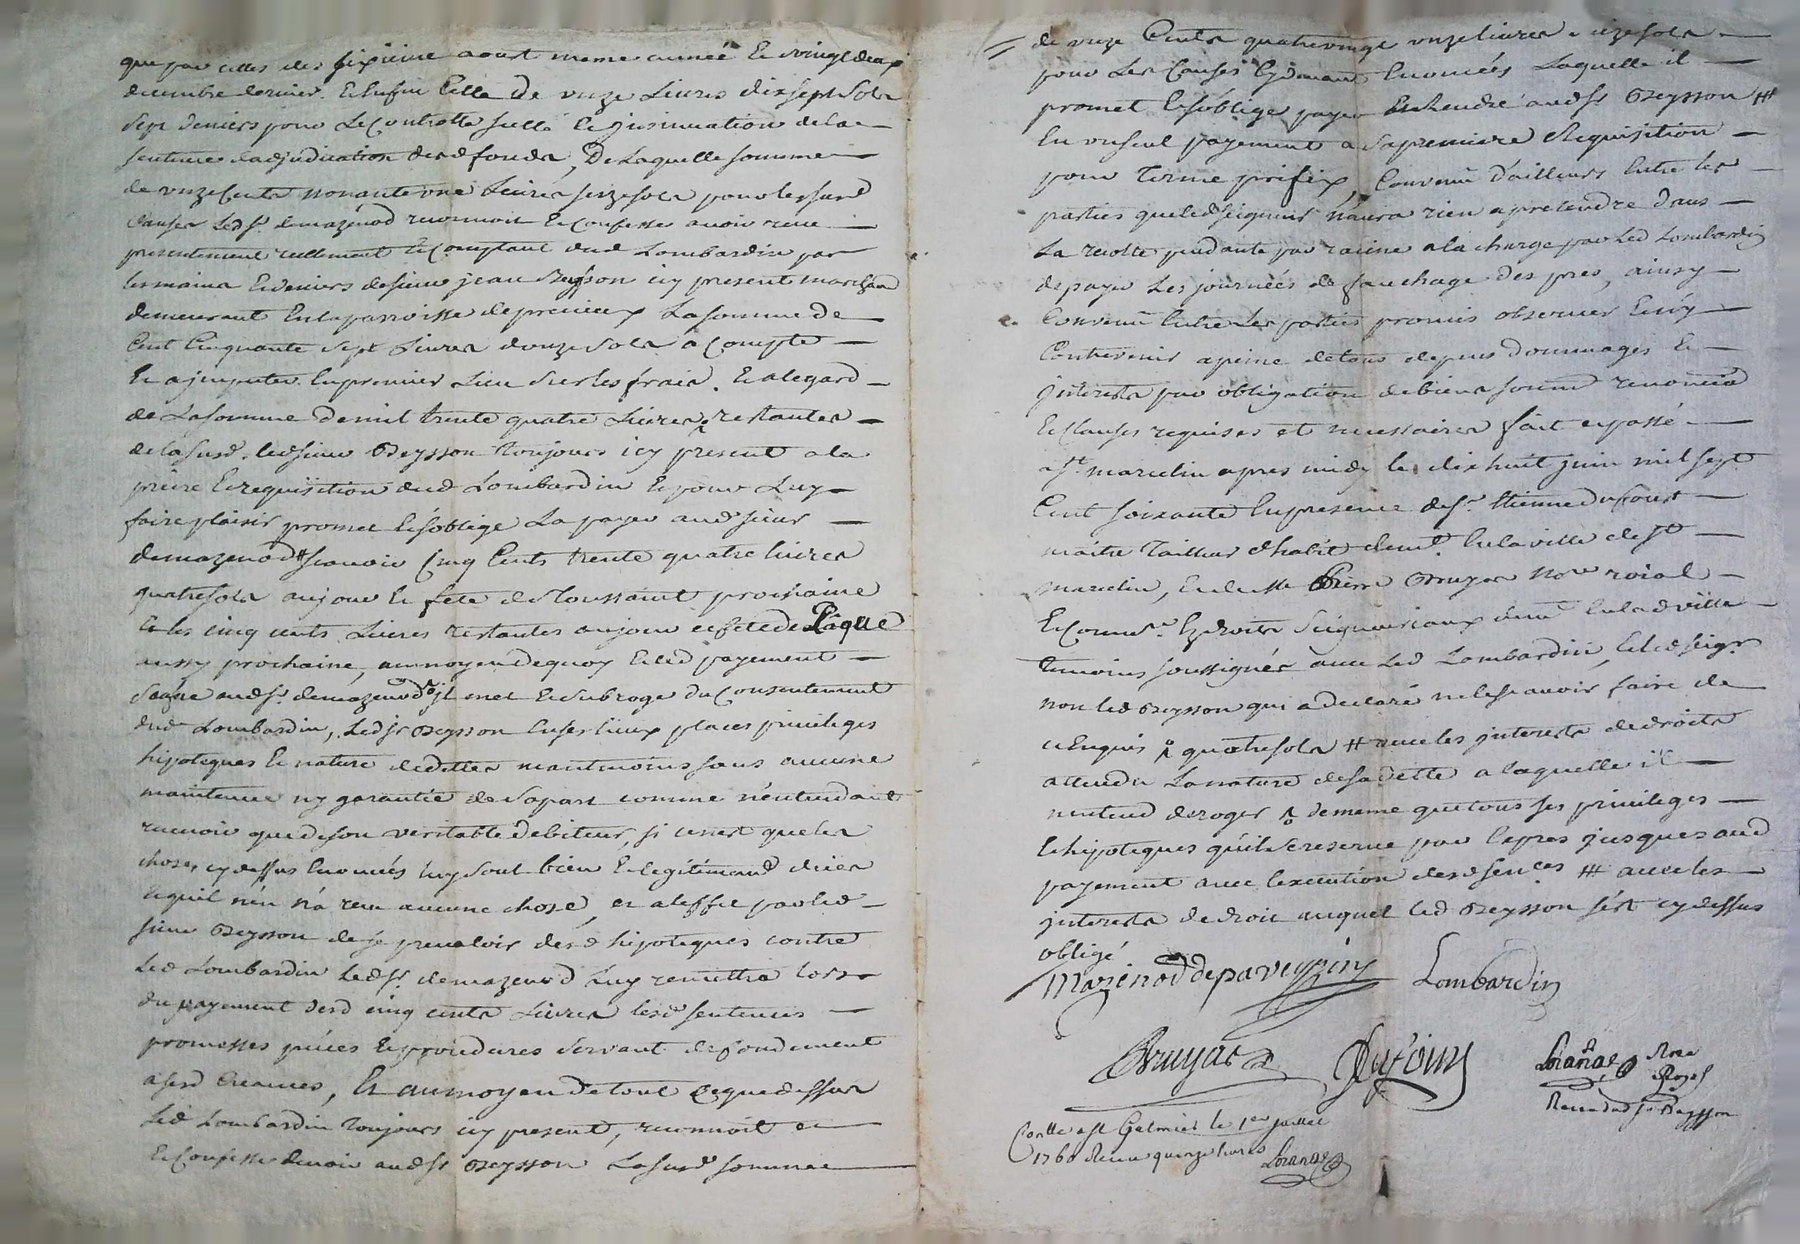 que par celles des sixiéme aoust meme année Et vingt deux
decembre dernier. Et Enfin Celle De onze Livres dix sept sols
sept deniers pour Le Controlle scellé Et jnsinuation de la
sentence d'adjudication desd fonds, De Laquelle somme
de onze Cents nonante une Livres seize sols pour les susd
causes Led sr. demazenod reconnoit Et Confesse avoir reçu
presentement reellement Et Comptant dud Lombardin par
les mains Et deniers de sieur jean Beysson icy present marchand
demeurant En la parroisse de precieux La somme de
Cent Cinquante sept Livres douze sols a Compte
Et a jmputer En premier Lieu sur les frais. Et a legard
de La somme de mil trente quatre Livres restantes
de la susd. led sieur Beysson toujours icy present a la
priere Et requisition dud Lombardin Et pour Luy
faire plaisir promet Et s'oblige La payer aud sieur
demazenod # scavoir Cinq Cents trente quatre livres
quatre sols au jour Et fete de Toussaint prochaine
Et les cinq cents Livres restantes au jour et fete de Pâque
aussy prochaine, au moyen de quoy Et led payement
aud sr. demazenod jl met Et subroge du Consentement
dud Lombardin, Led sr Beysson En ses lieux places privileges
hipoteques Et nature de dettes neantmoins sans aucune
maintenue ny garantie de sa part comme n'entendant
recevoir que de son veritable debiteur, si ce n'est que les
choses cy dessus Enoncés luy sont bien Et legitimemt dües
Et quil n'en n'a reçu aucune chose, et a l'effet par led
sieur Beysson de se prevaloir desd hipoteques contre
Led Lombardin Led sr. demazenod Luy remettra lors
du payement desd cinq cents Livres lesd sentences
promesses pieces Et procedures servant de fondement
a sesd Creances, Et au moyen De tout Ce que dessus
Led Lombardin toujours icy present, reconnoit et
Et Confesse devoir aud sr Beysson La susd somme
de onze Cents quatre vingt onze livres seize sols
pour Les Causes Cy devant Enoncées Laquelle il
promet Et s'oblige payer Et rendre aud sr Beysson #
En un seul payement a sa premiere Requisition
pour terme prefix, Convenu d'ailleurs Entre les
parties que led seigneur n'aura rien a pretendre dans
La recolte pendante par racine a la charge par Led Lombardin
de payer Les journées de fauchage des pres, ainsy
Convenu Entre Les parties promis observer Et n'y
Contrevenir a peine de tous depens dommages Et
jnterests par obligation de biens soumis renoncia
Et Clauses requises et necessaires fait et passé
a St. marcelin apres midy le dix huit juin mil sept
Cent soixante En presence de sr. Etienne Dufourt
maitre tailleur d'habit demt. En la ville de St
marcelin, Et de Me Pierre Bruyas Nore roial
Et Commre. Ez droits seigneuriaux demt En lad ville
temoins soussignés avec Led Lombardin, Et led seigr.
non led Beysson qui a declaré ne le scavoir faire de
ce Enquis quatre sols # avec les jnterests de droits
attendu La nature de sa dette a laquelle il
n'entend deroger de meme que tous ses privileges
Et hipoteques qu'il se reserve par Expres jusques aud
payement avec l'execution desd sences # avec les
jnterests de droit auquel led Beysson s'est cy dessus
obligé
Mazenod de paveyzin Lombardin
Bruyas Dufour
Nore
Royal
Conllé a St Galmier le 1er juillet
1760 Reçu quinze livres